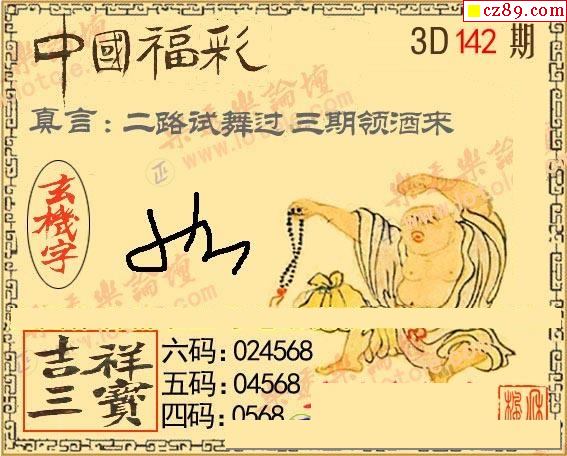 cz89.com
中國福彩
3D 142 期
真言：二路试舞过 三期领酒来
玄機字
吉祥三寶
六码：024568
五码：04568
四码：0568
樂彩論壇